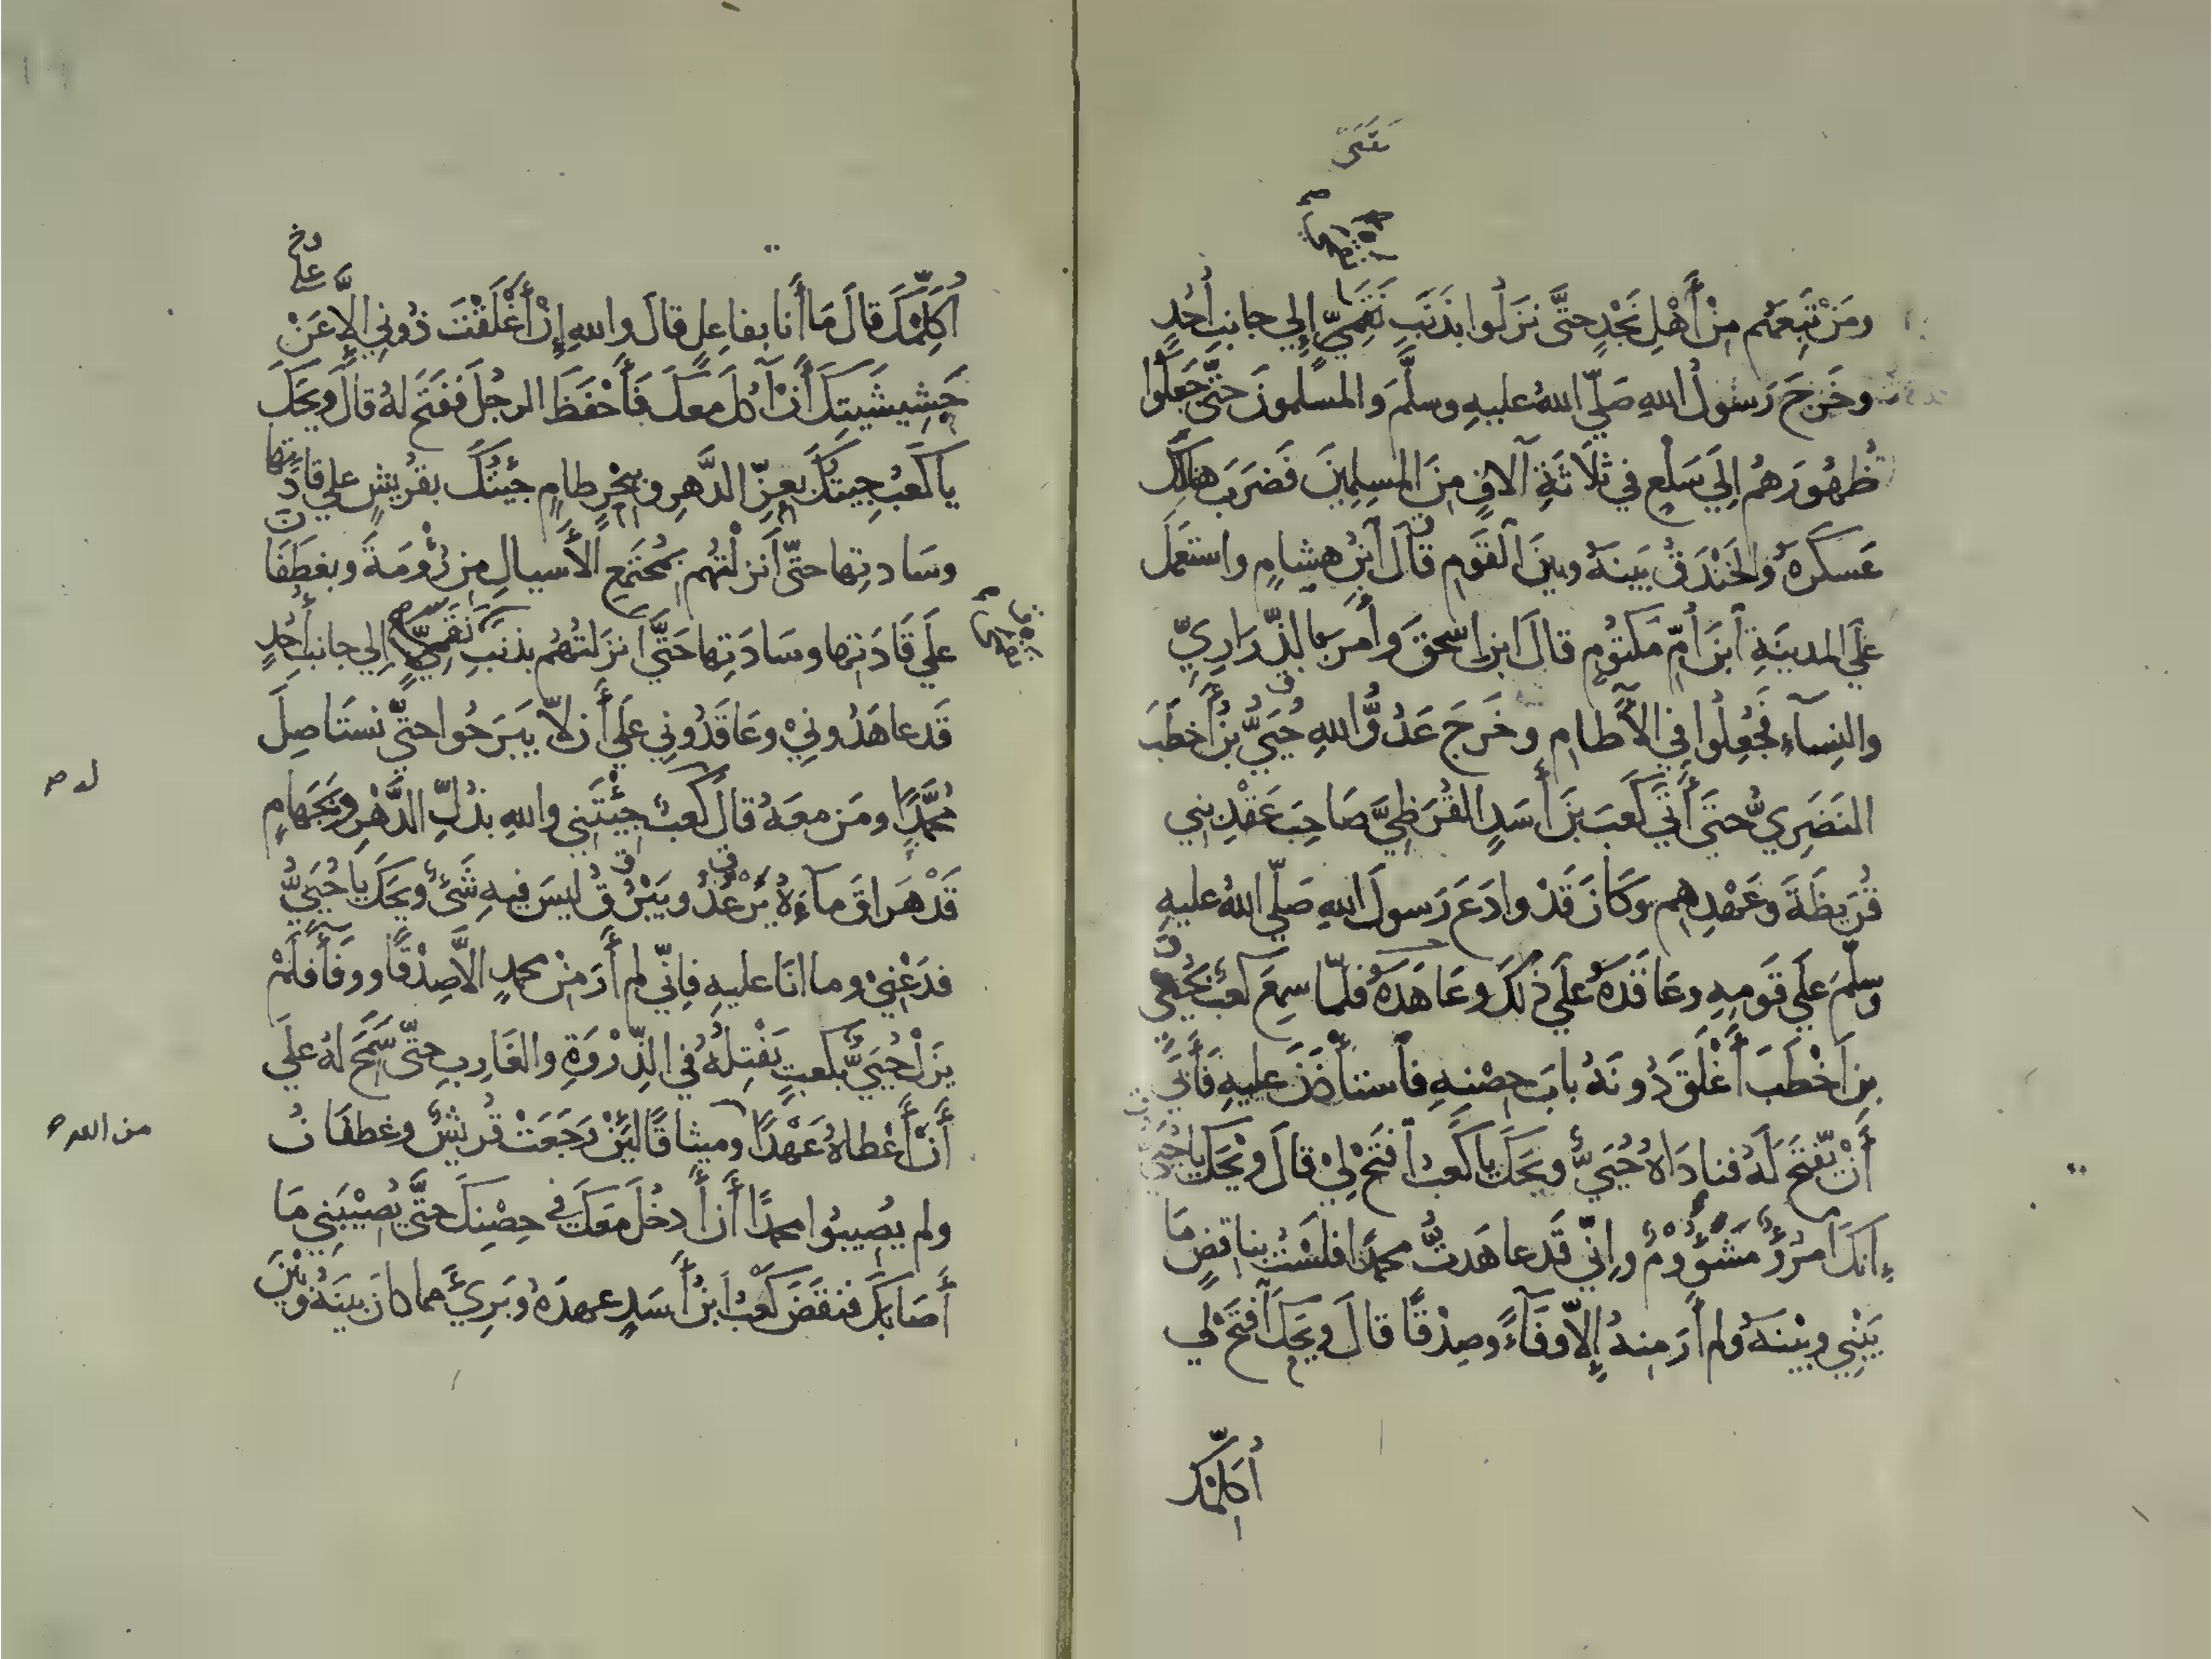 ومَنْ تَبِعَهُم مِنْ أَهْلِ نَجْدٍ حتَّى نزَلُوا بذَنَبِ نَقَمَى إلي جانبِ أُحُدٍ
وخَرجَ رَسُولُ اللهِ صَلّي اللهُ عليهِ وسلَّمَ والمسلمونَ حتَّى جَعَلُوا
ظُهُورَهُم إلَي سَلْعٍ في ثَلَاثَةِ آلافٍ مِنَ المسلِمِينَ فَضَرَبَ هنالِكَ
عَسكَرَهُ والخَنْدَقُ بَينَهُ وبينَ القَومِ قالَ ابنُ هشامٍ واستَعمَلَ
علَي المدينَةِ ابنَ أُمِّ مَكتُومٍ قالَ ابن إسحقَ وأَمرَ بالذَّرَارِيِّ
والنِسآءِ فجُعِلُوا في الآطامِ وخَرجَ عَدُوُّ اللهِ حُيَيُّ بنُ أَخطَبَ
النَضَرِيُّ حتَى أَتَي كَعبَ بنَ أَسَدٍ القُرَظِيَّ صَاحِبَ عَقْدِ بني
قُرَيظَةَ وعَهْدِهِم وكَانَ قَدْ وادَعَ رَسولَ اللهِ صَلّي اللهُ عليهِ
وسلّمَ علَي قَومِهِ وعَاقَدَهُ علَي ذلكَ وعَاهَدَهُ فلمّا سمِعَ كعبٌ بحُيَيِّ
بنِ أَخْطَبَ أَغْلَقَ دُونَهُ بابَ حِصْنِهِ فاستأْذَنَ عليهِ فَأَبَي
أَنْ يَفتَحَ لَهُ فنادَاهُ حُيَيٌّ ويَحَكَ ياكَعبُ افتَحْ لِيْ قالَ ويْحَكَ ياحُيَيُّ
إنكَ امْرُؤٌ مَشْؤُومٌ وإنّي قَدعاهَدتُ محمدًا فلَسْتُ بناقضٍ مَا
بَيْنِي وبيْنَهُ ولم أَرَ منهُ إلاّ وفَآءً وصِدْقًا قالَ ويحَكَ افتَحْ لي
أُكَلِّمْكَ
أُكَلِّمْكَ قالَ مَا أَنا بفاعِلٍ قالَ واللهِ إنْ أَغْلَقْتَ دُوني إلاَّ عَنْ
جَشِيشَيتِكَ أَنْ آكُلَ معكَ فَأَحْفَظَ الرجُلَ ففَتَحَ لهُ قالَ ويحَكَ
ياكَعبُ جِيتكَ بعِزِّ الدَّهرِ وببَحْرٍ طامٍ جِئتُكَ بقُرَيشٍ علي قادَتِها
وسَادتِها حتّى أَنزلْتُهُم بمُجتَمَعِ الأسيالِ مِن رُوْمَةَ وبغطَفَانَ
علَي قَادَتِها وسَادَتِها حَتَّى انزَلتُهُم بذَنَبِ نَقَمَى إلي جانبِ أُحُدٍ
قَدعاهَدُونيْ وعَاقَدُوني علَي أَن لاّ يبرَحُوا حتّى نستَاصِلَ
مُحمَّدًا ومَن معَهُ قالَ كعبٌ جِئْتَنِي واللهِ بذُلِّ الدَّهْرِ وبجَهامٍ
قَدْ هَراقَ مآءَهُ يَرْعُدُ ويَبْرُقُ ليسَ فيهِ شَيْءٌ ويحَكَ ياحُيَيُّ
فدَعْنيْ وما انَا عليهِ فإنّي لم أَرَ مِنْ محمدٍ الَّاصِدْقًا ووفَآءً فلَمْ
يَزَلْ حُيَيٌّ بكعبٍ يَفْتِلُهُ في الذِّرْوَةِ والغَارِبِ حتّى سَمَحَ لهُ علَي
أَنْ أَعْطاهُ عَهْدًا وميثاقًا ليَنْ رَجَعَتْ قُريشٌ وغطفَانُ
ولم يُصِيبُوا محمدًا أَنْ أَدخُلَ مَعَكَ في حِصْنِكَ حتَّى يُصيْبَنِي مَا
أَصَابكَ فنقَضَ كَعْبُ ابنُ أَسَدٍ عهدَهُ وبَرِيَ مما كانَ بينَهُ وبَيْنَ